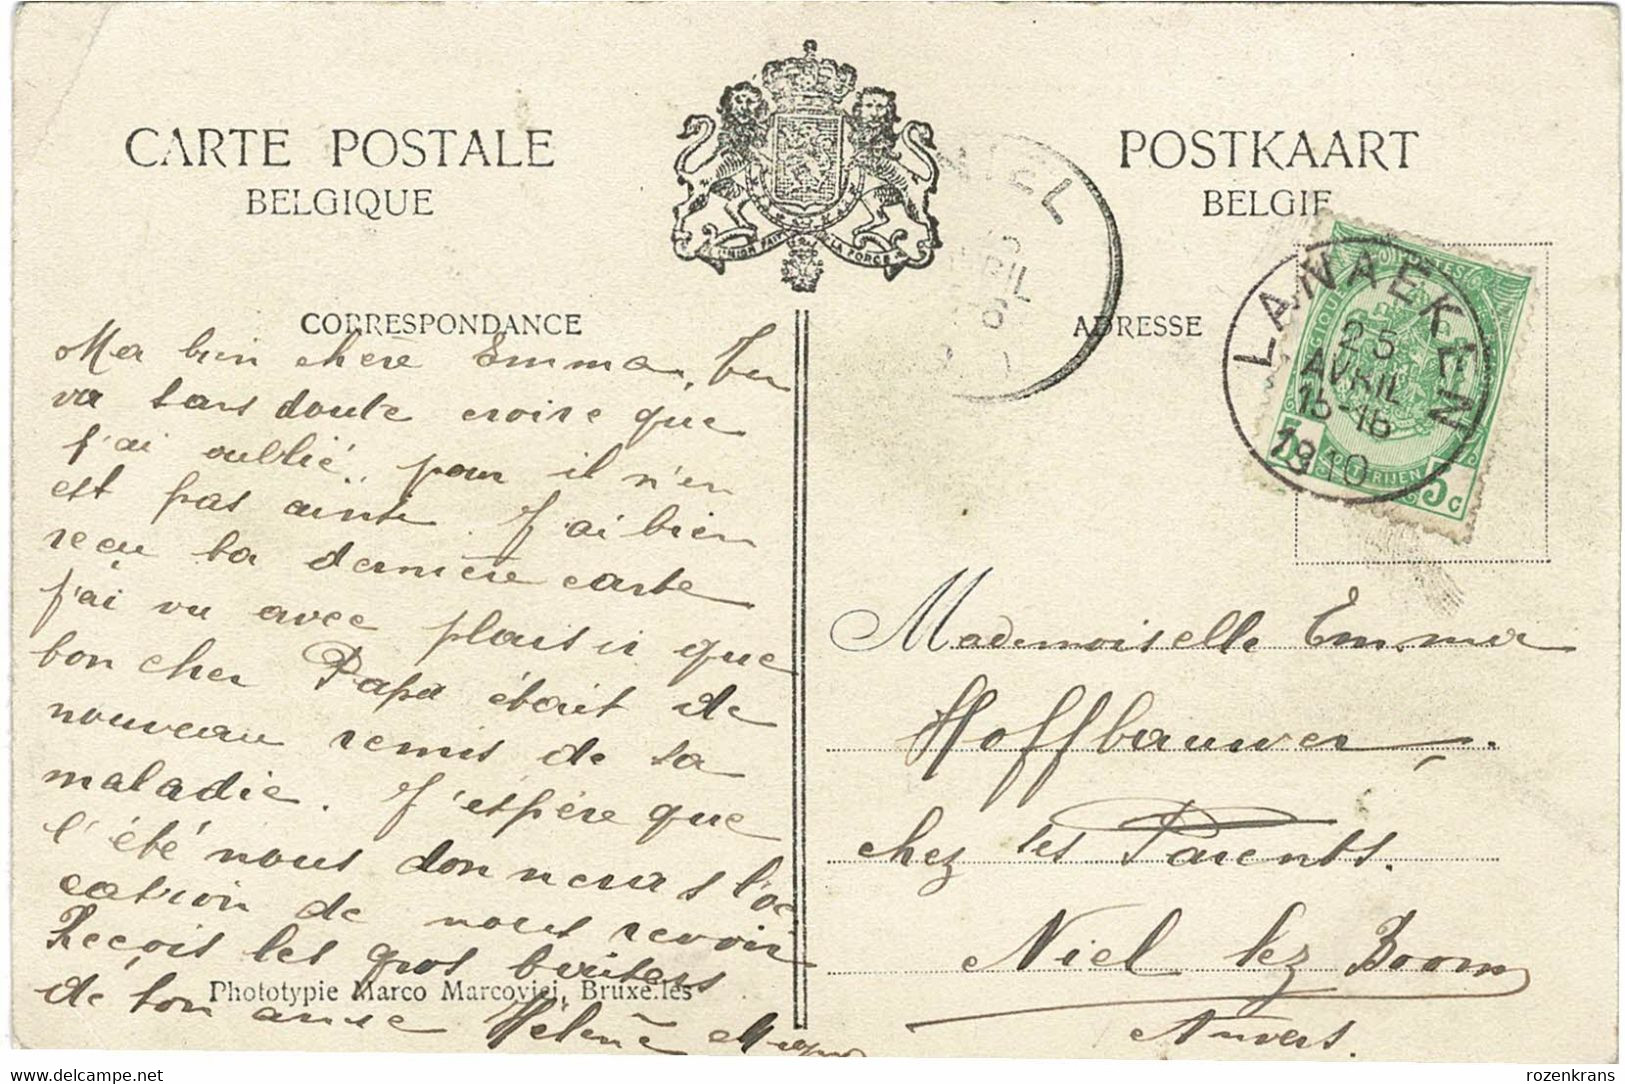 CARTE POSTALE
BELGIQUE
POSTKAART
BELGIE
UNION FAIT LA FORCE
NIEL
LANAEKEN
25
AVRIL
15-16
1910
5c
CORRESPONDANCE
ADRESSE
Ma bien chère Emma, Tu
va sans doute croire que
j'ai oublié, pour il n'en
est pas ainsi. J'ai bien
reçu ta dernière carte
j'ai vu avec plaisir que
bon cher Papa était de
nouveau remis de sa
maladie. J'espère que
l'été nous donnera l'oc
cation de nous revoir
Reçois les gros baisers
de ton amie Hélène
Phototypie Marco Marcovici, Bruxelles
Mademoiselle Emma
Hoffbauwer.
chez ses Parents.
Niel lez Boom
Anvers.
rozenkrans